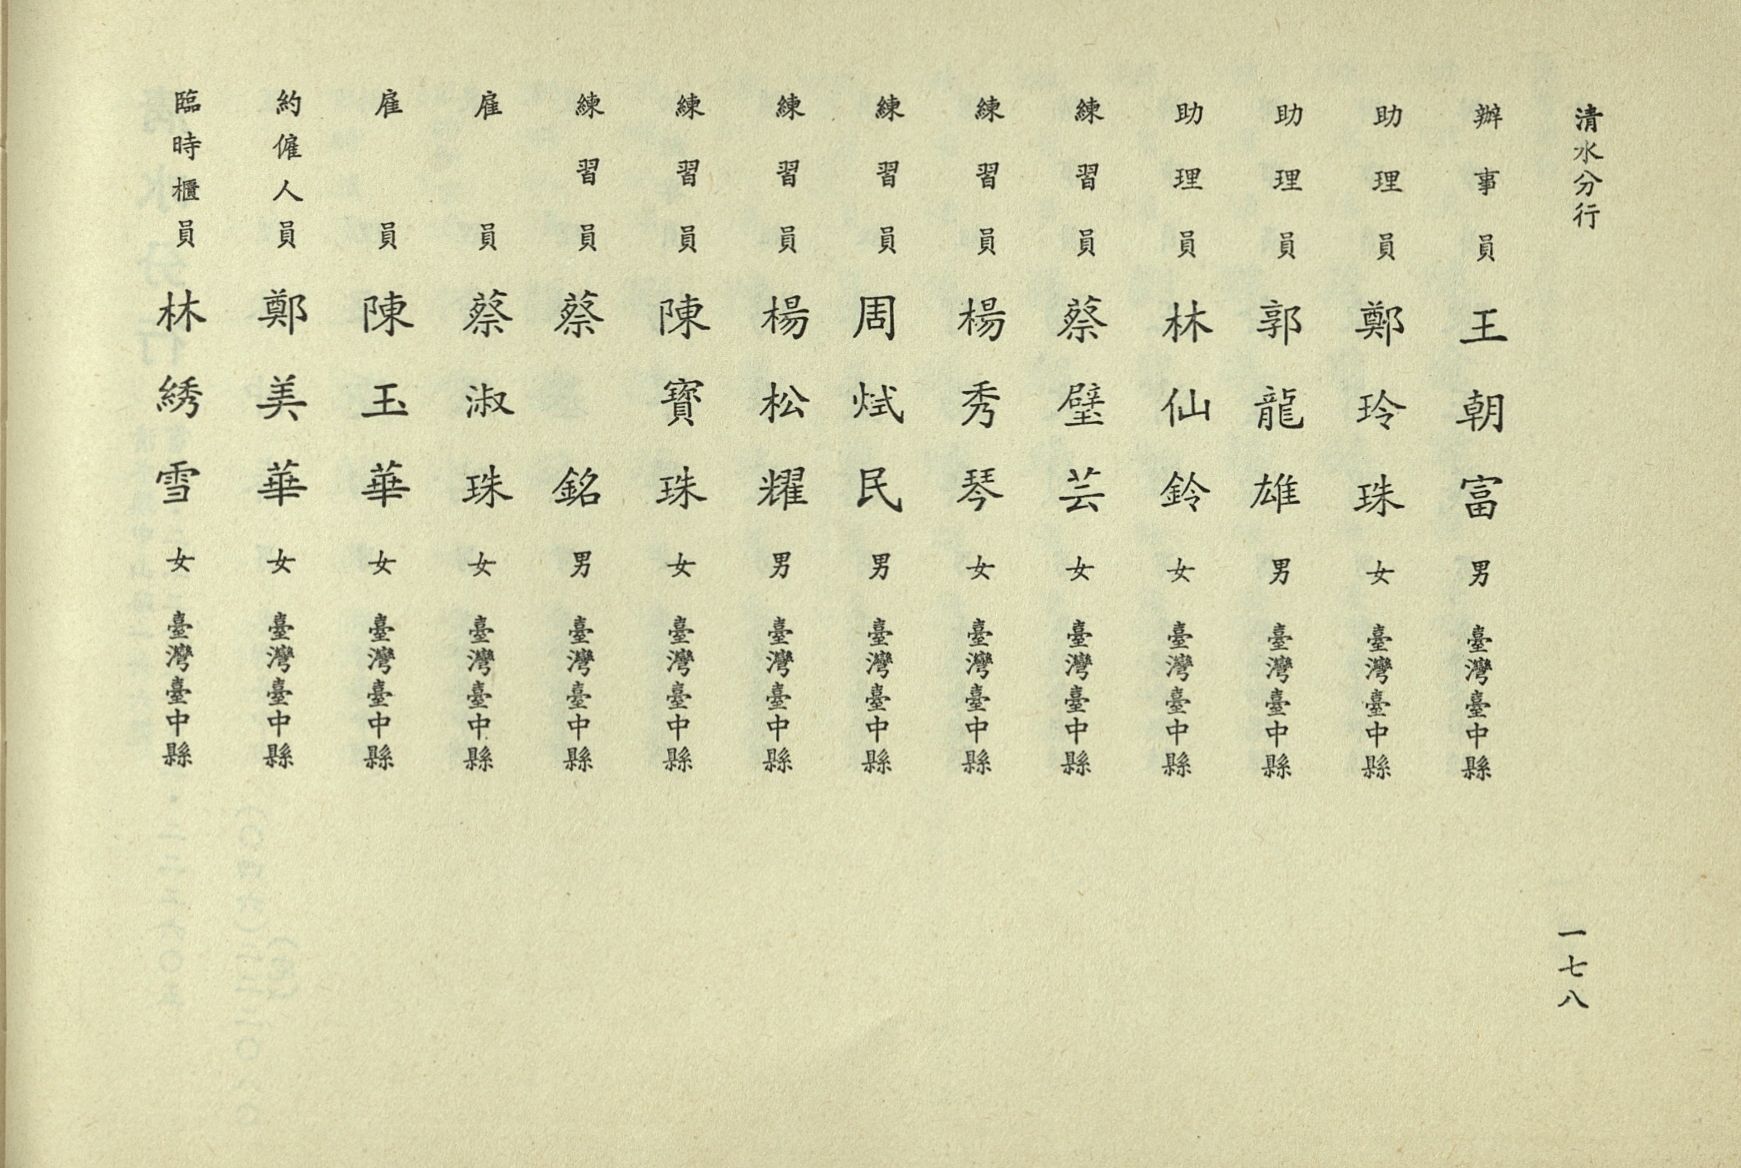 清水分行
一七八
辦事員王朝富男臺灣臺中縣
助理員鄭玲珠女臺灣臺中縣
助理員郭龍雄男臺灣臺中縣
助理員林仙鈴女臺灣臺中縣
練習員蔡璧芸女臺灣臺中縣
練習員楊秀琴女臺灣臺中縣
練習員周烒民男臺灣臺中縣
練習員楊松耀男臺灣臺中縣
練習員陳寶珠女臺灣臺中縣
練習員蔡銘男臺灣臺中縣
雇員蔡淑珠女臺灣臺中縣
雇員陳玉華女臺灣臺中縣
約僱人員鄭美華女臺灣臺中縣
臨時櫃員林綉雪女臺灣臺中縣